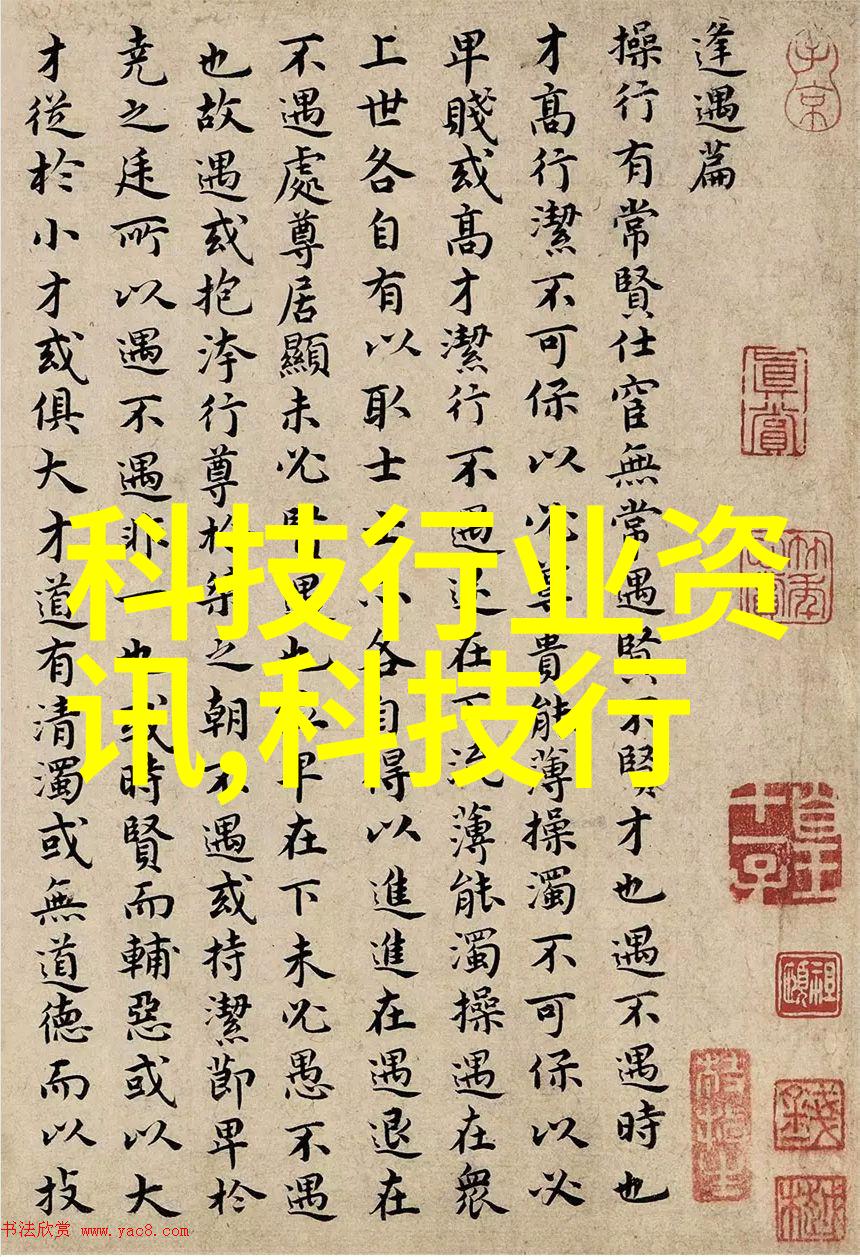 逢遇篇
操行有常賢仕宦無常遇賢不賢才也遇不遇時也
才高行潔不可保以必尊貴能薄操濁不可保以必
卑賤或高才潔行不遇退在下流薄能濁操遇在衆
上世各自有以取士士亦各自得以進進在遇退在
不遇處尊居顯未必賢遇也位卑在下未必愚不遇
也故遇或抱洿行尊於桀之朝不遇或持潔節卑於
堯之廷所以遇不遇非一也或時賢而輔惡或以大
才從於小才或俱大才道有清濁或無道德而以技
眞賞
科技行业资
讯,科技行
书法欣赏 www.yac8.com